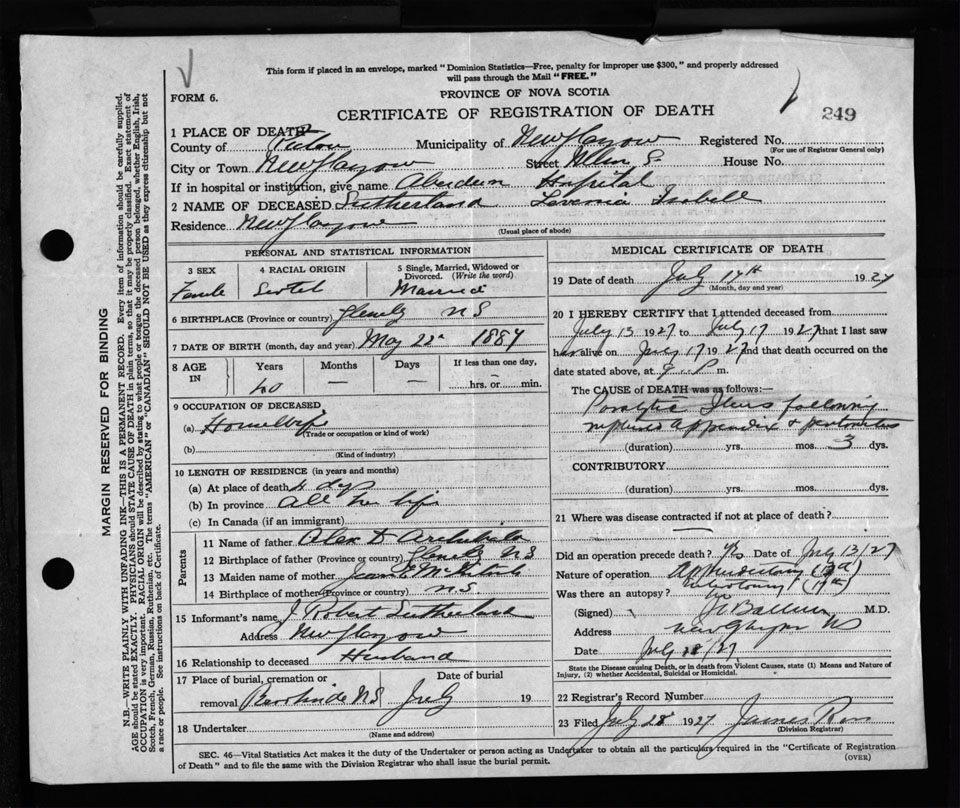 This form if placed in an envelope, marked "Dominion Statistics—Free, penalty for improper use $300," and properly addressed
will pass through the Mail "FREE."
FORM 6.
PROVINCE OF NOVA SCOTIA
CERTIFICATE OF REGISTRATION OF DEATH
249
1 PLACE OF DEATH
County of Pictou Municipality of New Glasgow Registered No.
(For use of Registrar General only)
City or Town New Glasgow Street House No.
If in hospital or institution, give name Aberdeen Hospital
2 NAME OF DECEASED Sutherland Isabell
Residence New Glasgow
(Usual place of abode)
PERSONAL AND STATISTICAL INFORMATION
3 SEX 4 RACIAL ORIGIN 5 Single, Married, Widowed or
Divorced. (Write the word)
Female Scotch Married
6 BIRTHPLACE (Province or country) Glenelg N S
7 DATE OF BIRTH (month, day and year) May 22 1887
8 AGE IN Years Months Days If less than one day,
40 — — hrs. or min.
9 OCCUPATION OF DECEASED
(a) Housewife
(Trade or occupation or kind of work)
(b)
(Kind of industry)
10 LENGTH OF RESIDENCE (in years and months)
(a) At place of death 4 days
(b) In province All her life
(c) In Canada (if an immigrant)
Parents
11 Name of father Alex D Archibald
12 Birthplace of father (Province or country) Glenelg NS
13 Maiden name of mother
14 Birthplace of mother (Province or country) N.S.
15 Informant's name J Robert Sutherland
Address New Glasgow
16 Relationship to deceased Husband
17 Place of burial, cremation or Date of burial
removal NS July 19
18 Undertaker
(Name and address)
MEDICAL CERTIFICATE OF DEATH
19 Date of death July 17th 1927
(Month, day and year)
20 I HEREBY CERTIFY that I attended deceased from
July 13 1927 to July 17 1927 that I last saw
her alive on July 17 1927 and that death occurred on
the date stated above, at 9 P m.
The CAUSE of DEATH was as follows:—
Paralytic Ileus following
ruptured appendix & peritonitis
(duration) yrs. mos. 3 dys.
CONTRIBUTORY
(duration) yrs. mos. dys.
21 Where was disease contracted if not at place of death?
—
Did an operation precede death? Yes Date of July 13/27
Nature of operation Appendectomy
Was there an autopsy?
(Signed) M.D.
Address New Glasgow NS
Date July /27
State the Disease causing Death, or in death from Violent Causes, state (1) Means and Nature of
Injury, (2) whether Accidental, Suicidal or Homicidal.
22 Registrar's Record Number
23 Filed July 28 1927 James
(Division Registrar)
SEC. 46—Vital Statistics Act makes it the duty of the Undertaker or person acting as Undertaker to obtain all the particulars required in the "Certificate of Registration
of Death" and to file the same with the Division Registrar who shall issue the burial permit.
(OVER)
MARGIN RESERVED FOR BINDING
N.B.—WRITE PLAINLY WITH UNFADING INK—THIS IS A PERMANENT RECORD. Every item of information should be carefully supplied.
AGE should be stated EXACTLY. PHYSICIANS should STATE CAUSE OF DEATH in plain terms, so that it may be properly classified. Exact statement of
OCCUPATION is very important. RACIAL ORIGIN will be described by stating to what people or tongue the deceased person belonged, whether English, Irish,
Scotch, French, German, Russian, Ruthenian, etc. The terms "AMERICAN" or "CANADIAN" SHOULD NOT BE USED as they express citizenship but not
a race or people. See instructions on back of Certificate.